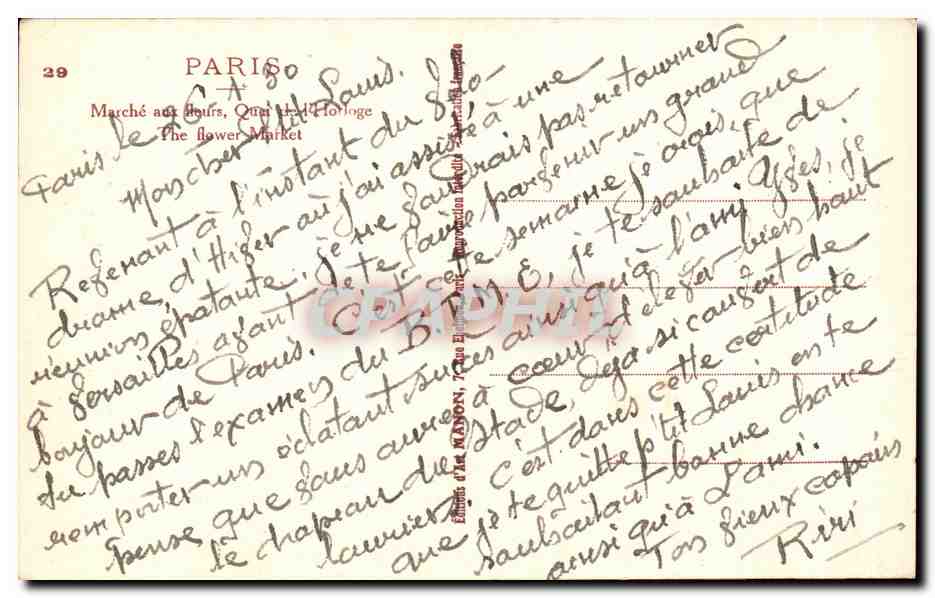 29
PARIS
Marché aux fleurs, Quai de l'Horloge
The flower Market
Editions d'Art MANON, Paris Reproduction Interdite - Fabrication française
CPARAMA
Paris le 26 1 30
Mon cher petit Louis.
Revenant à l'instant du vélo-
drome d'Hiver où j'ai assisté à une
réunion épatante, je ne saurais pas retourner
à Versailles avant de te faire parvenir un grand
bonjour de Paris. C'est cette semaine je crois, que
tu passes l'examen du B.P.M.E, je te souhaite de
remporter un éclatant succès ainsi qu'à l'ami je
pense que vous aurez à cœur d'élever bien haut
le chapeau du stade, déjà si causant de
lauriers. C'est dans cette certitude
que je te quitte p'tit Louis en te
souhaitant bonne chance
ainsi qu'à Lami.
Ton vieux copain
Riri